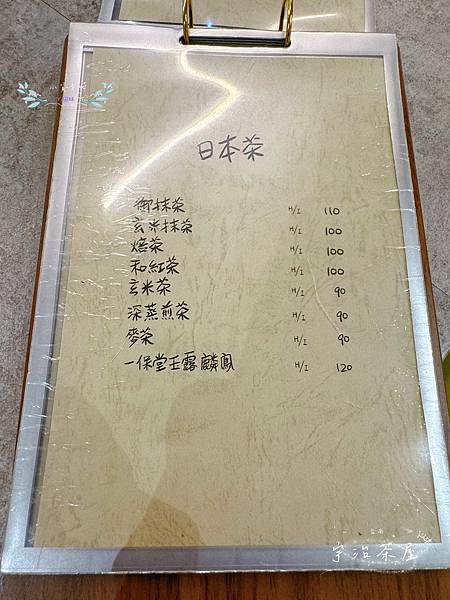 日本茶
御抹茶 H/I 110
玄米抹茶 H/I 100
焙茶 H/I 100
和紅茶 H/I 100
玄米茶 H/I 90
深蒸煎茶 H/I 90
麥茶 H/I 90
一保堂玉露麟鳳 H/I 120
宇治茶屋